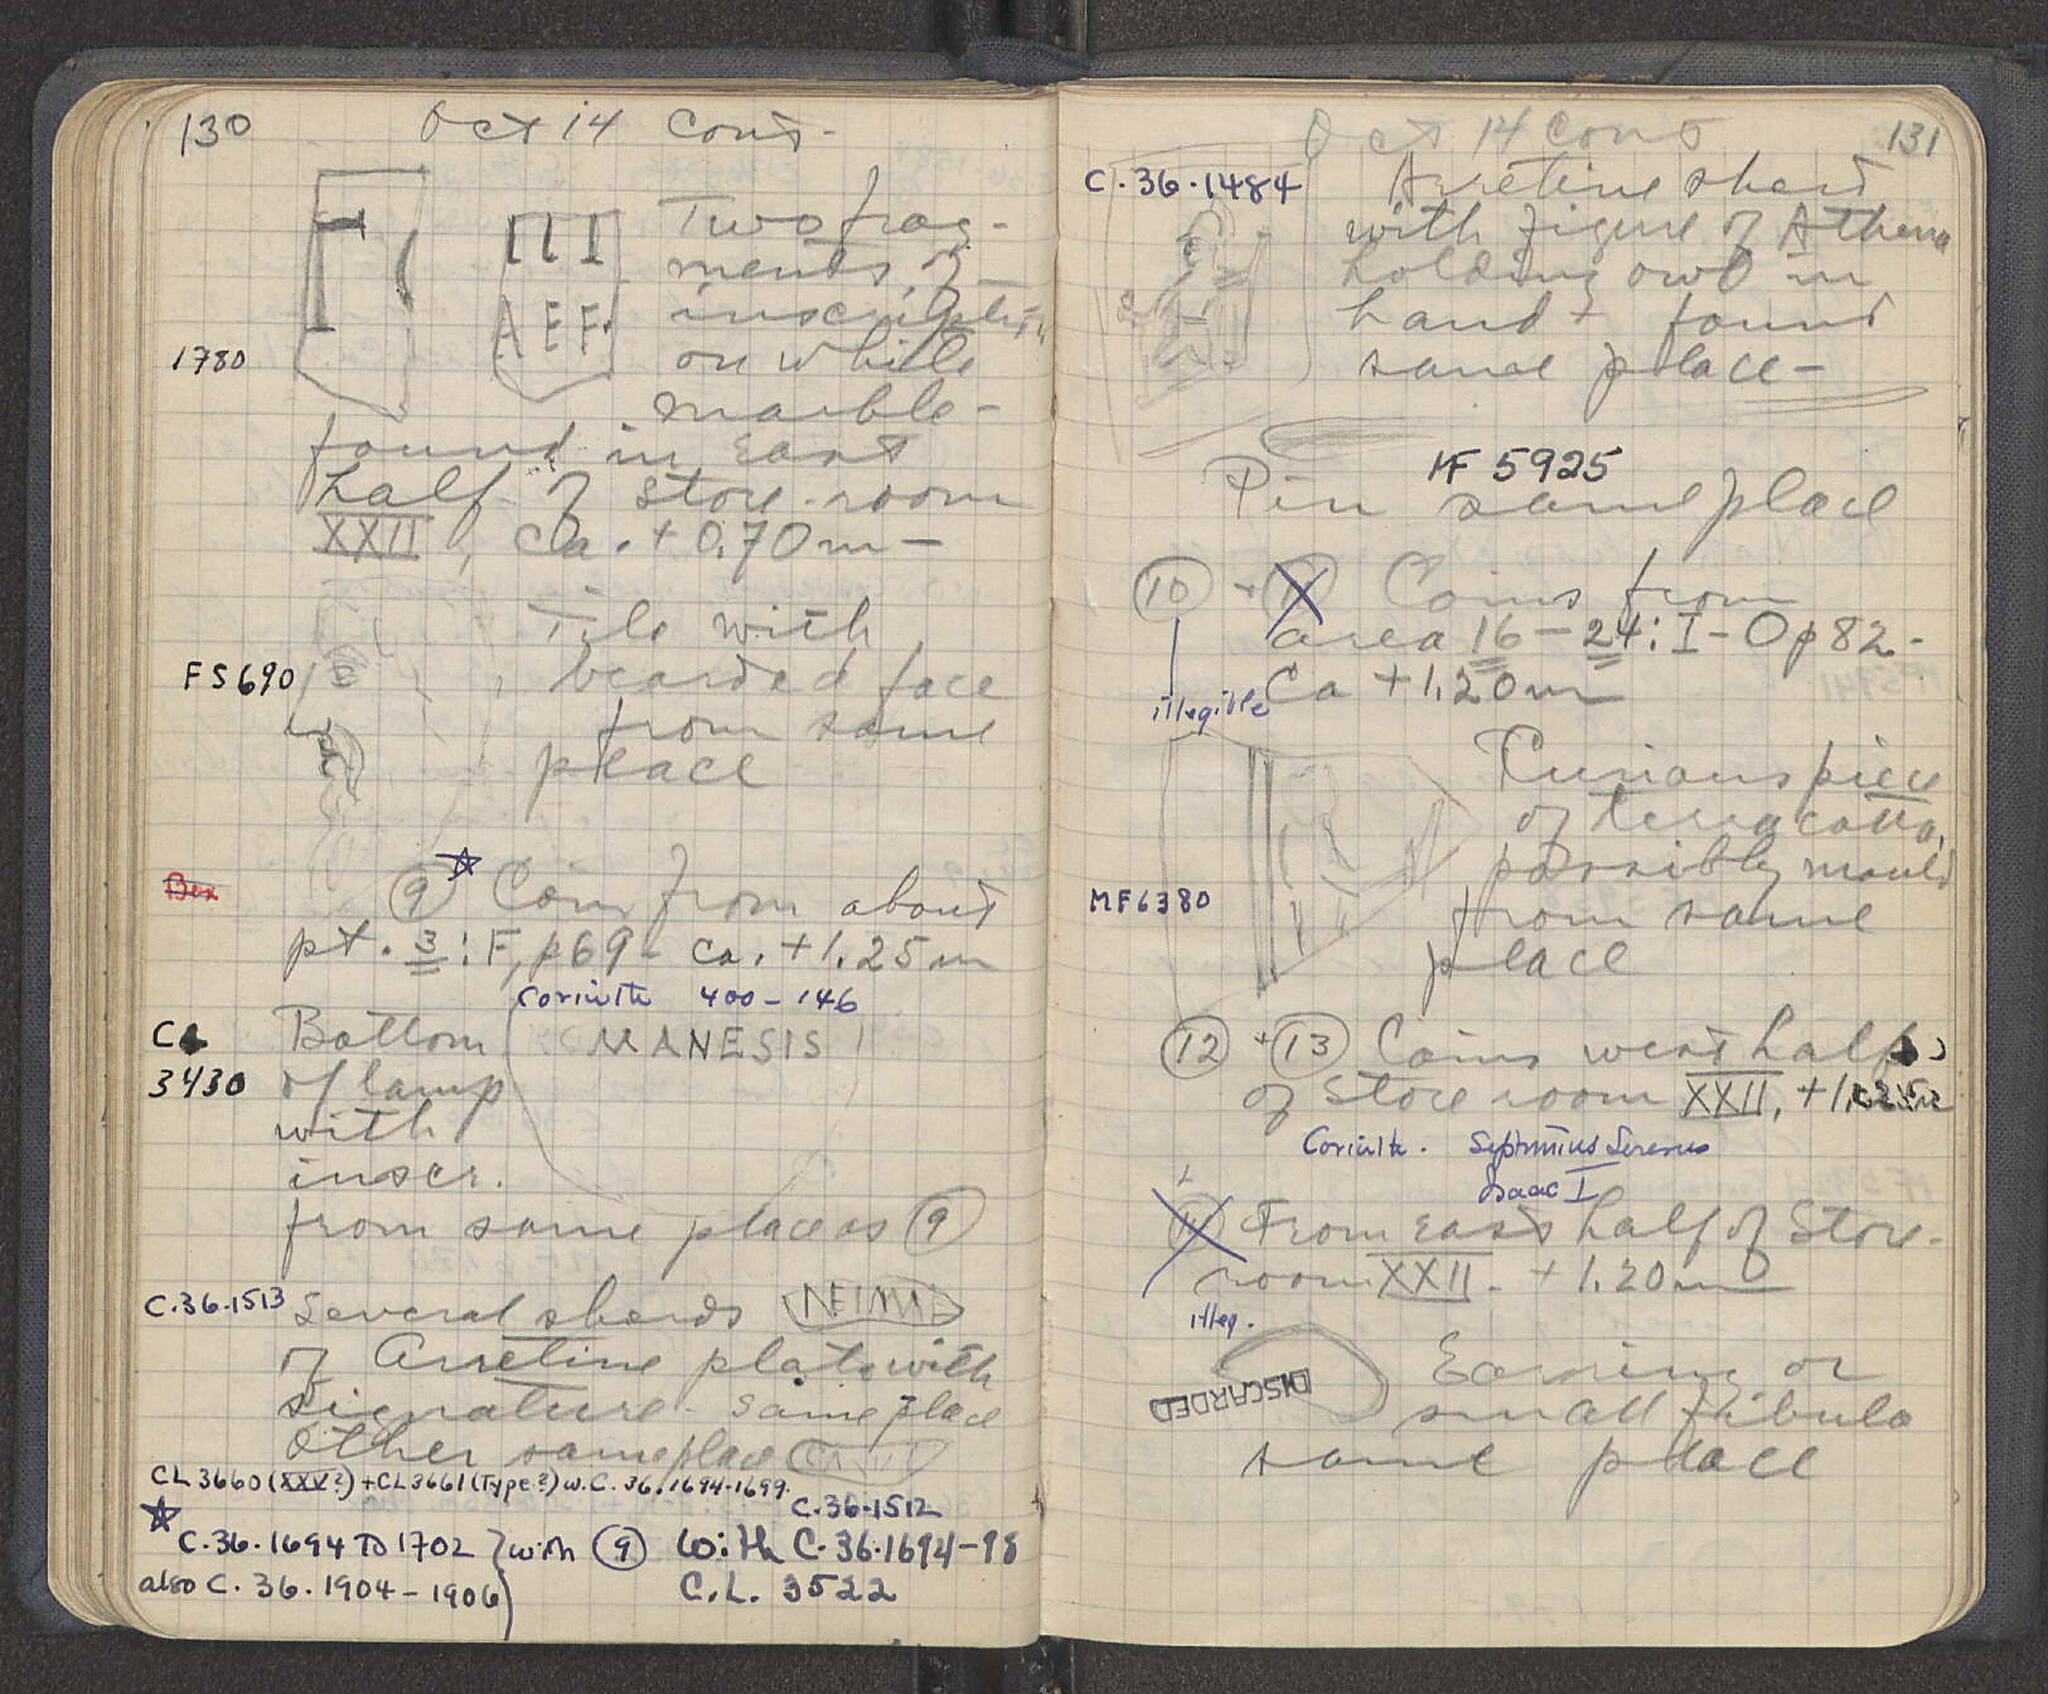 130
Oct 14 Cont.
Two frag-
ments of
inscription
on white
marble -
ΠΙ
ΑΕΕ
1780
found in East
half of store-room
XXII, ca. +0.70m -
Tile with
bearded face
from same
place
FS690
Box
⑨ ☆ Coin from about
pt. 3:F, p69 - ca. +1.25m
Corinth 400-146
CL
3430
Bottom
of lamp
with
inscr.
MANESIS
from same place as ⑨
C.36.1513
Several sherds
of Arretine plate with
signature - same place
Other same place
CL3660 (XXV?) + CL3661 (Type?) w. C.36.1694-1699.
C.36-1512
☆
C.36.1694 TO 1702 } with ⑨
also C. 36. 1904 - 1906
with C.36.1694-98
C.L. 3522
Oct 14 Cont
131
C.36.1484
Arretine sherd
with figure of Athena
holding owl in
hand + found
same place -
MF 5925
Pin same place
⑩ + Coins from
area 16-24:I-O p82-
Ca +1.20m
illegible
Curious piece
of terracotta,
possibly mould
from same
place
MF6380
⑫ + ⑬ Coins west half
of Store room XXII, +1.25m
Corinth. Septimius Severus
Isaac I
From east half of Store-
room XXII - +1.20m
illeg.
DISCARDED
Earring or
small fibula
same place